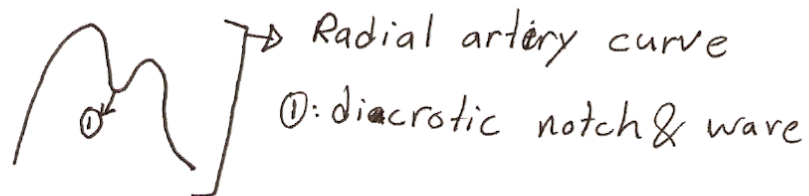 → Radial artery curve
①
①: diacrotic notch & wave